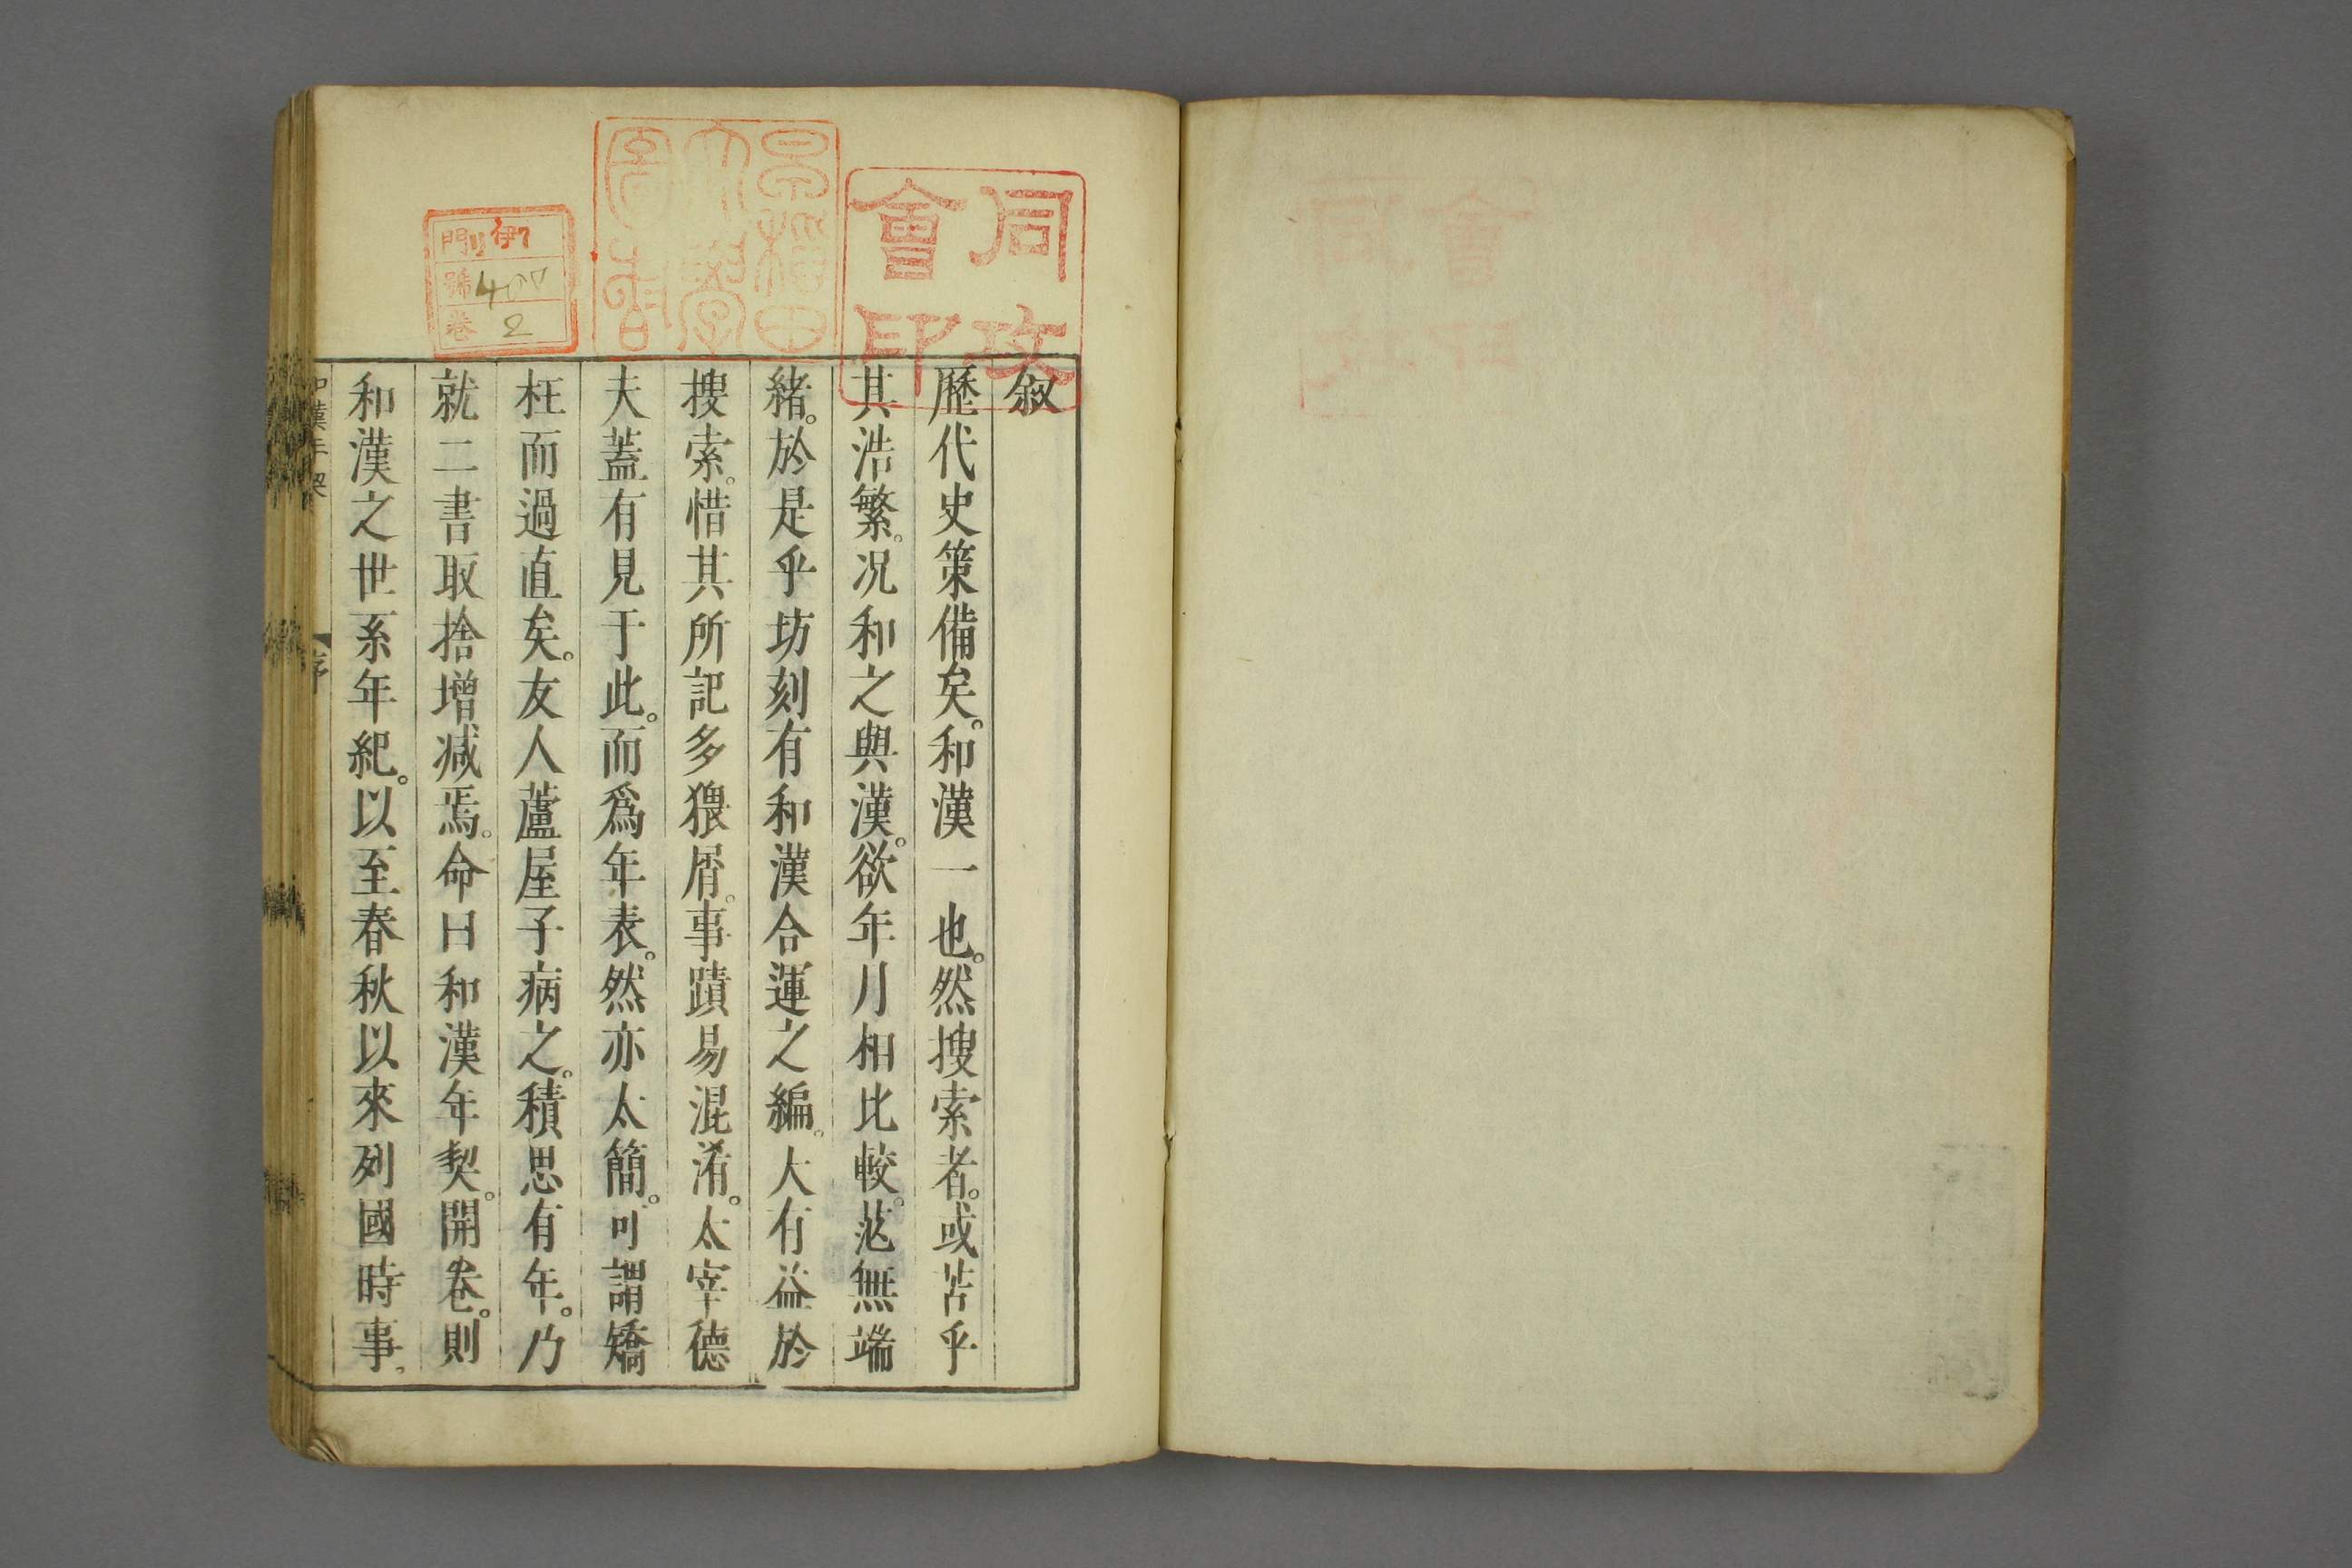 叙
歷代史策備矣。和漢一也。然搜索者。或苦乎
其浩繁。况和之與漢。欲年月相比較。茫無端
緒。於是乎坊刻有和漢合運之編。大有益於
搜索。惜其所記多猥屑。事蹟易混淆。太宰德
夫蓋有見于此。而爲年表。然亦太簡。可謂矯
枉而過直矣。友人蘆屋子病之。積思有年。乃
就二書取捨增減焉。命曰和漢年契。開卷。則
和漢之世系年紀。以至春秋以來列國時事。
和漢年契
序
同攻
會印
早稻田
大學
圖書
門 伊
號 400
卷 2